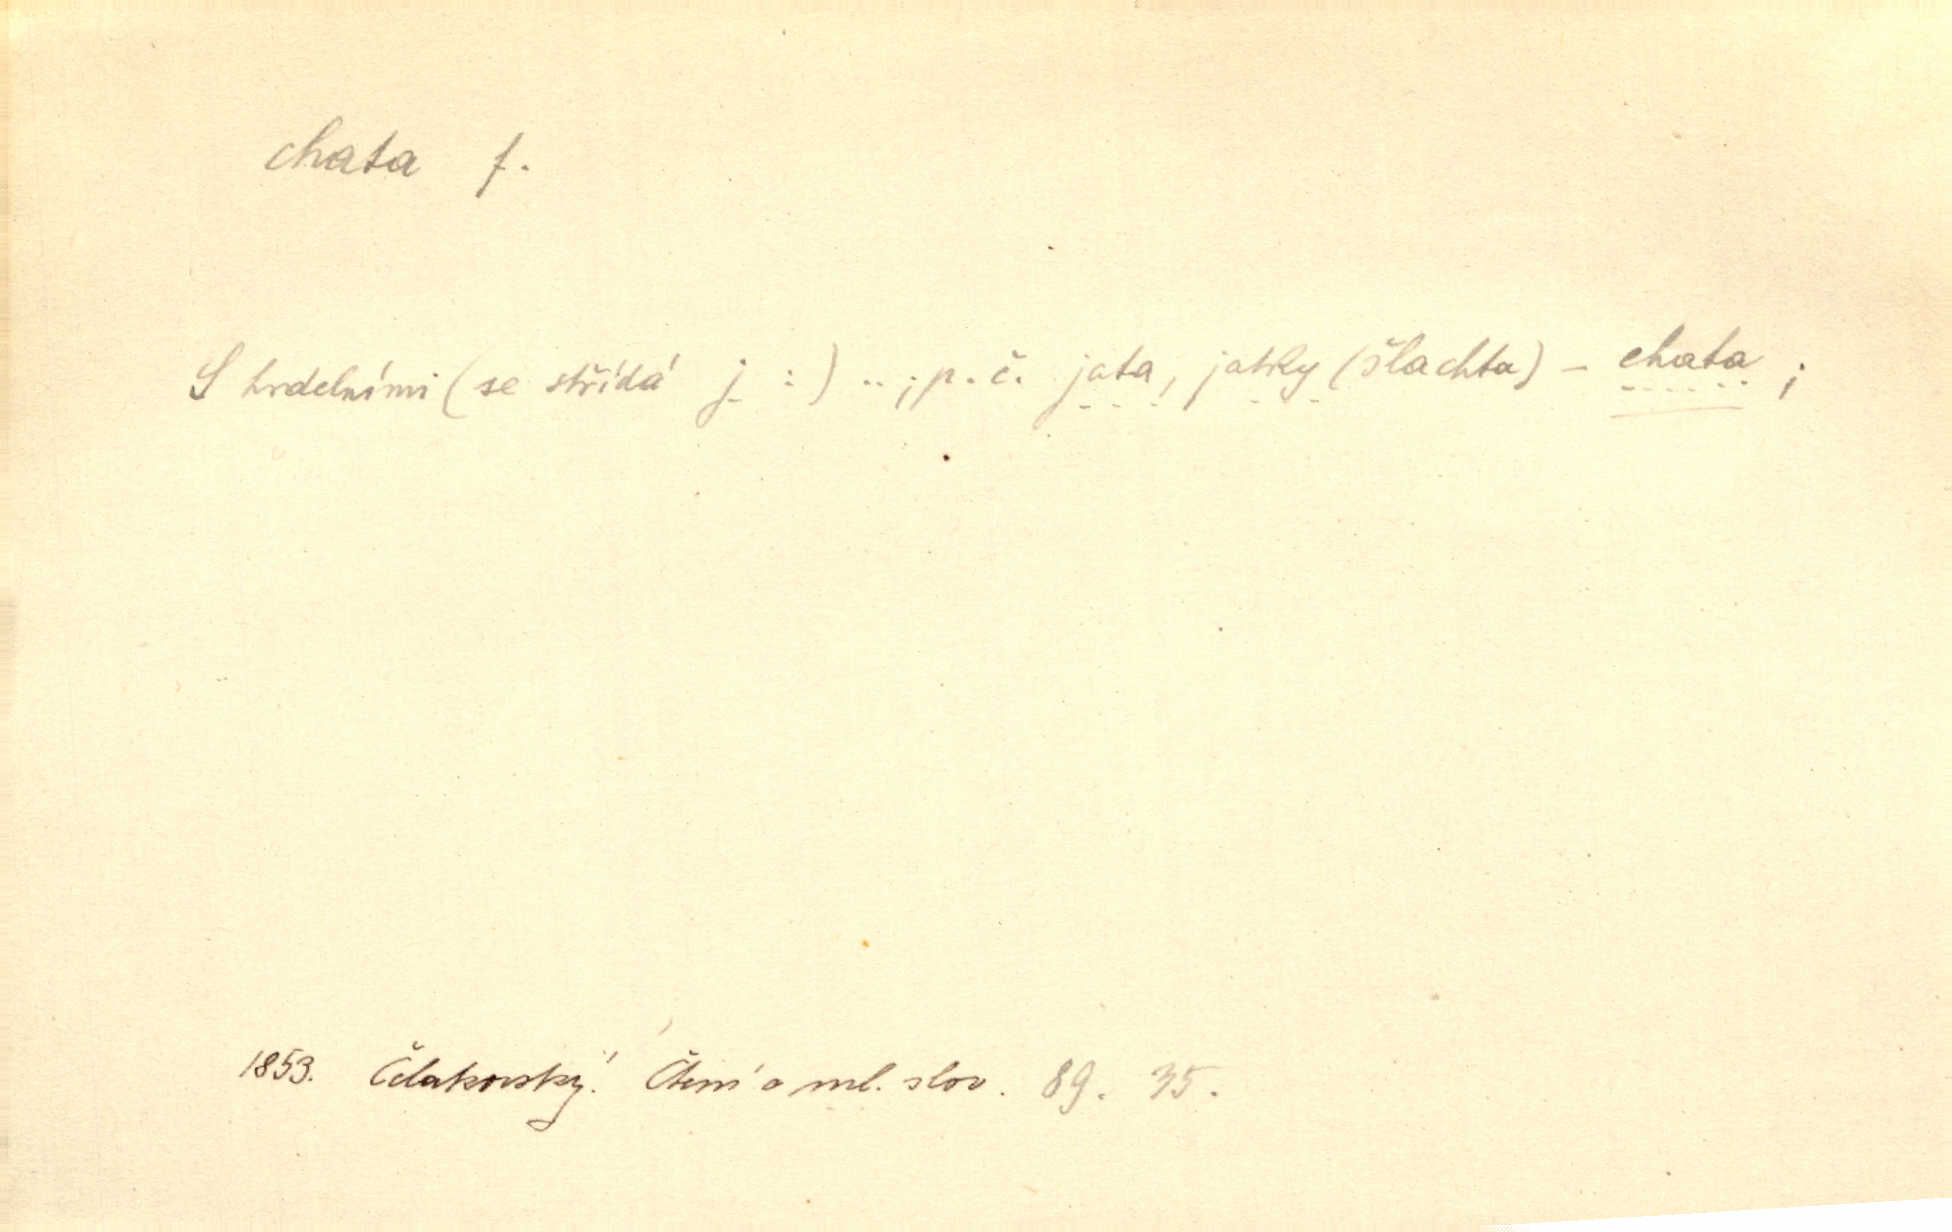 chata f.
S hrdelními (se střídá j :) ..; p. č. jata, jatky (šlachta) – chata ;
1853. Čelakovský. Čtení o ml. slov. 89. 35.